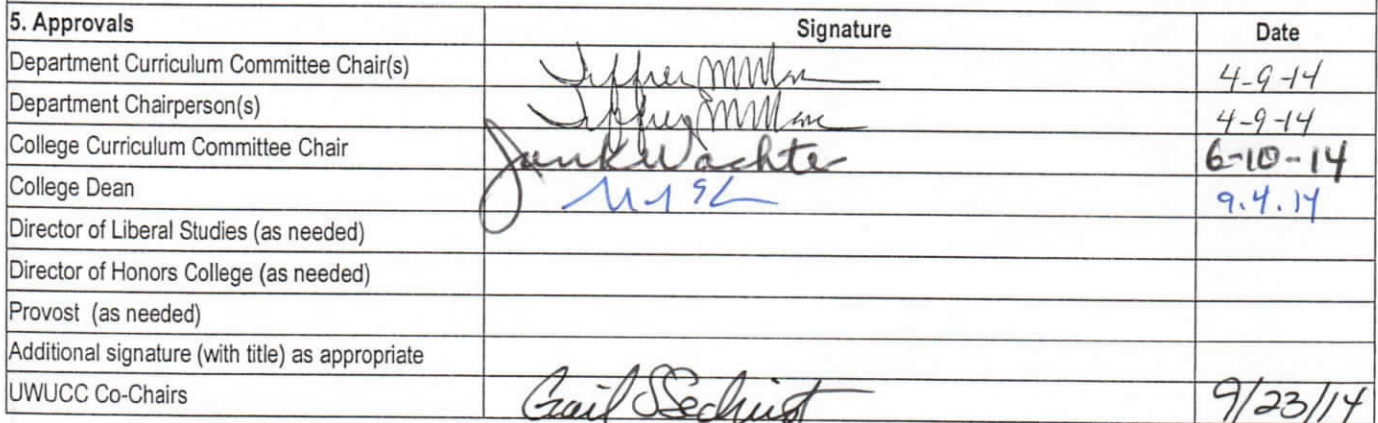 5. Approvals Signature Date
Department Curriculum Committee Chair(s) 4-9-14
Department Chairperson(s) 4-9-14
College Curriculum Committee Chair Wachter 6-10-14
College Dean 9.4.14
Director of Liberal Studies (as needed)
Director of Honors College (as needed)
Provost (as needed)
Additional signature (with title) as appropriate
UWUCC Co-Chairs Gail S Sechrist 9/23/14